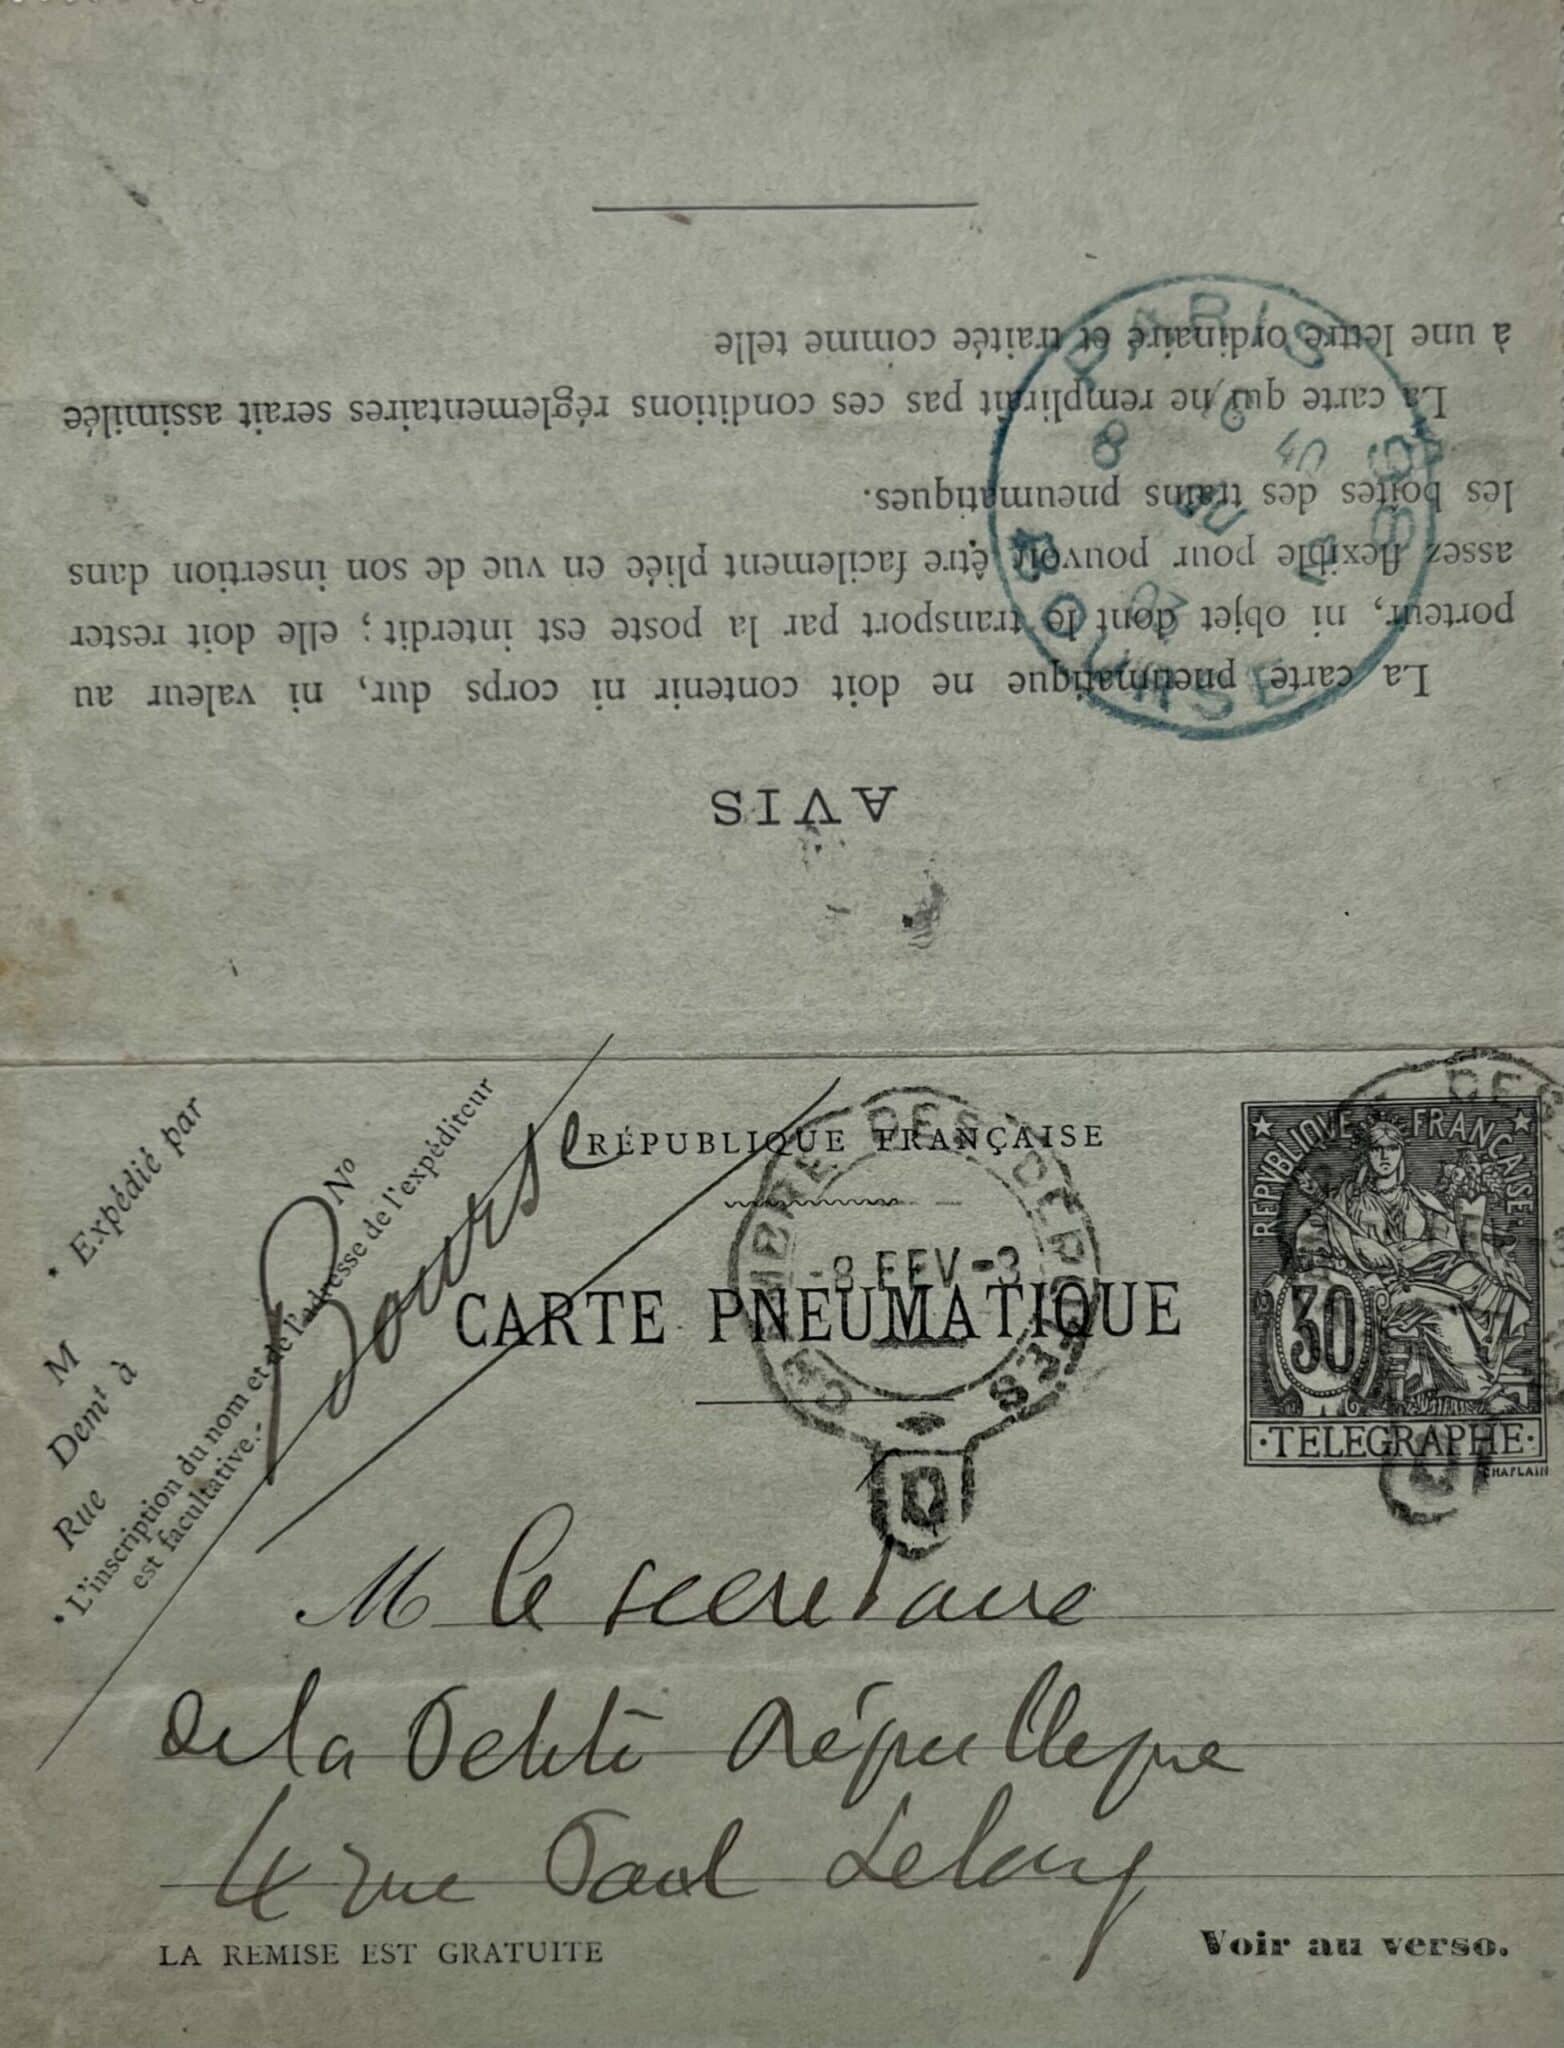 AVIS
La carte pneumatique ne doit contenir ni corps dur, ni valeur au
porteur, ni objet dont le transport par la poste est interdit ; elle doit rester
assez flexible pour pouvoir être facilement pliée en vue de son insertion dans
les boîtes des trains pneumatiques.
La carte qui ne remplirait pas ces conditions réglementaires serait assimilée
à une lettre ordinaire et traitée comme telle
PARIS
BOURSE
* Expédié par
M
Demt à
Rue
No
* L'inscription du nom et de l'adresse de l'expéditeur
est facultative.-
Bourse
RÉPUBLIQUE FRANÇAISE
CARTE PNEUMATIQUE
CHAMBRE DES DEPUTES
-8 FEV -3
REPVBLIQVE FRANÇAISE
30
TELEGRAPHE
CHAPLAIN
M le secretaire
de la Petite République
4 rue Paul Lelong
LA REMISE EST GRATUITE
Voir au verso.